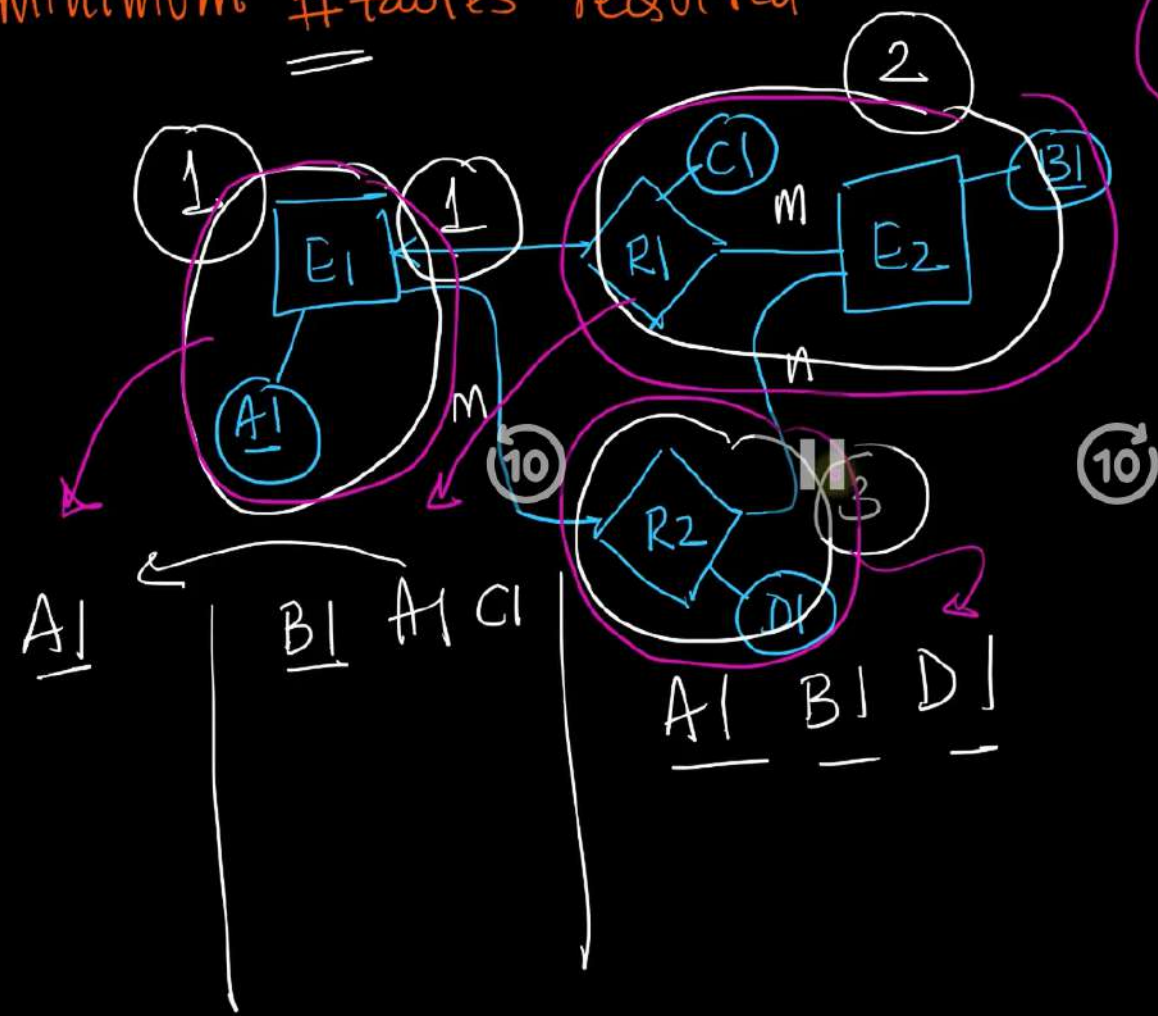 minimum #tables required
2
1
1
C1
m
B1
E1
R1
E2
n
A1
m
10
10
R2
3
D1
A1
B1 A1 C1
A1 B1 D1